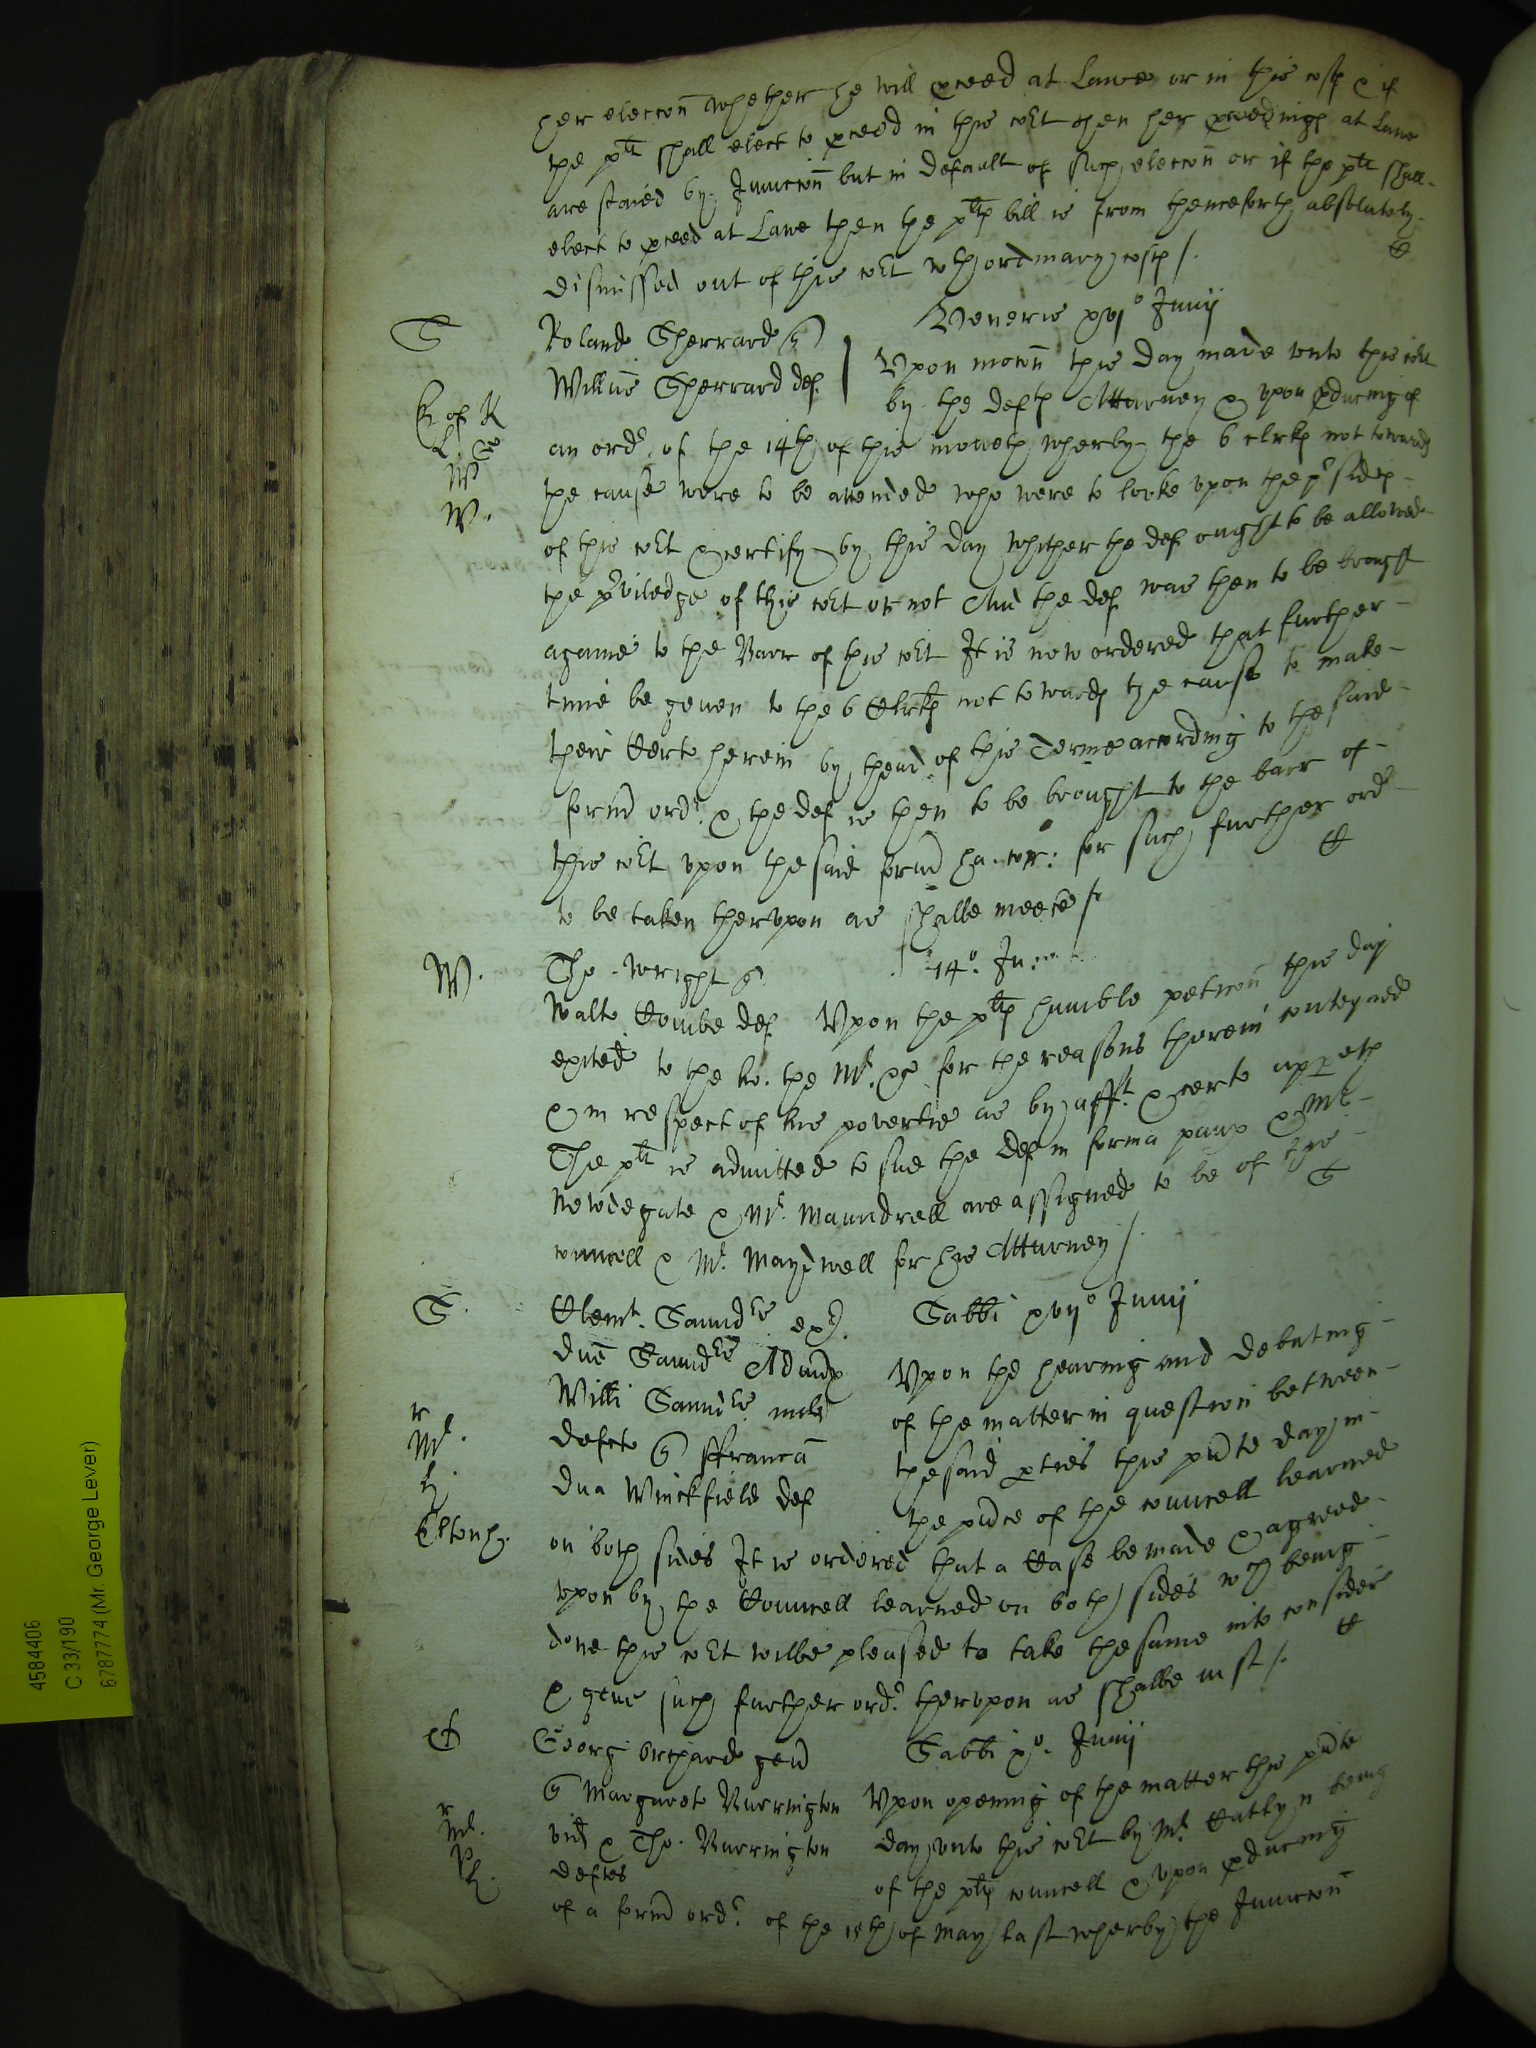 her eleccon whether he will pceed at Lawe or in this cort & if
the plt shall elect to pceed in this cort then her pceedings at Lawe
are staied by Iniunccon but in default of such eleccon or if the plt shall
elect to pceed at Lawe then the plts bill is from thenceforth absolutely
dismissed out of this cort wth ordinary costs /.
Veneris xvj° Junij
S Roland Sherrard q
Willm̄ Sherrard def
Upon mocon this day made unto this cort
by the defts Attorney & upon pducing of
an ordr of the 14th of this moneth wherby the 6 clrks not towards
the cause were to be attended who were to looke upon the psidts
of this cort & certify by this day whither the def ought to be allowed
the priviledge of this cort or not And the def was then to be brought
againe to the Barr of this cort It is now ordered that further
time be geven to the 6 Clrks not towards the cause to make
their Certe herein by thend of this Terme according to the said
formd ordr & the def is then to be brought to the barr of
this cort upon the said formd ha. cor: for such further ordr
to be taken therupon as shalbe meete /.
W. Tho. Wright q
14°. Ju
Walto Combe def Upon the plts humble peticon this day
exited to the ho. the Mr. &c for the reasons therein conteyned
& in respect of his povertie as by afft & certe appeth
The plt is admitted to sue the def in forma paup & Mr
Newdegate & Mr. Maundrell are assigned to be of his
councell & Mr. Maydwell for his Attorney /
S. Clemt. Saunders exr.
Sabbi xvij° Junij
Dne Saunders Admx
Willi Saunders milts
defcte q ffrancan
dna Winckfield def
Upon the hearing and debating
of the matter in question between
the said pties this pnte day in
the pnce of the councell learned
on both sides It is ordered that a Case be made & agreed
upon by the Councell learned on both sides wch being
done this cort wilbe pleased to take the same into consider
& geve such further ordr therupon as shalbe iust /.
Georg Orchard gen
Sabbi x°. Junij
q Margarets Burrington
vid & Tho. Burrington
deftes
Upon opening of the matter this pnte
day unto this cort by Mr Catlyn being
of the plts councell & upon pducing
of a formd ordr of the 18th of May last wherby the Iniunccon
4584406
C 33/190
6787774 (Mr. George Lever)